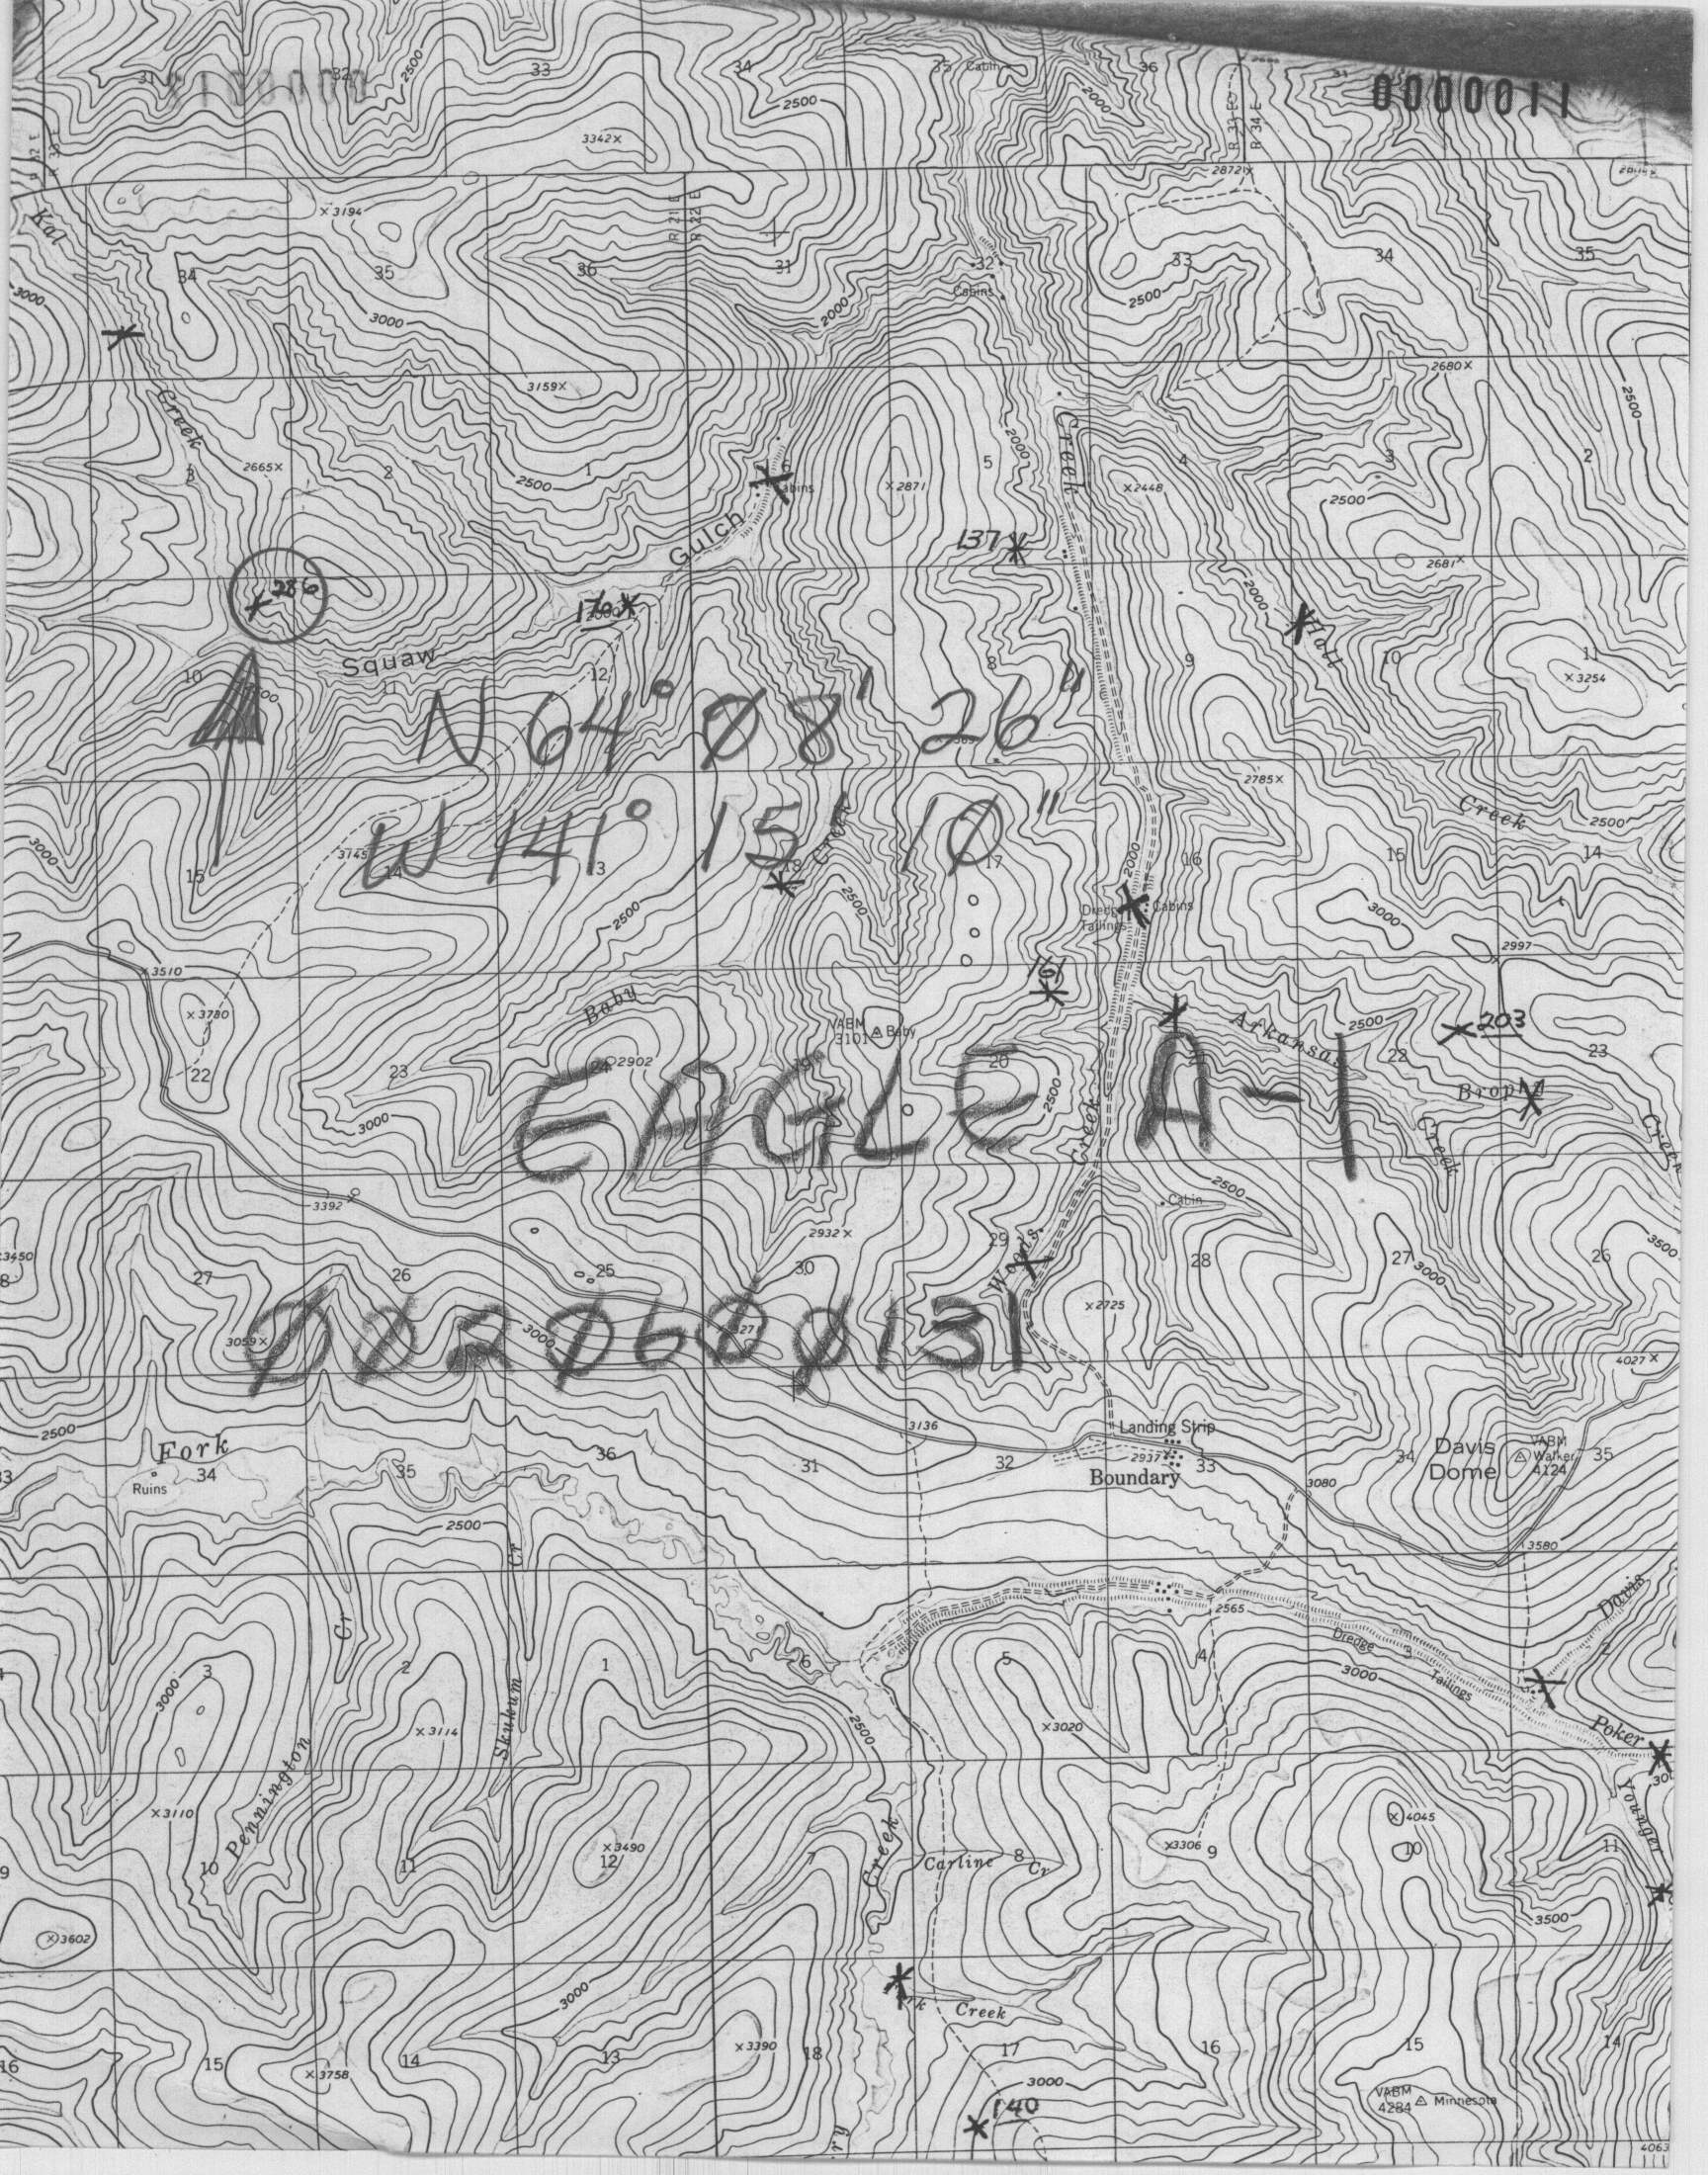 31 32 2500 33 34 35 Cabin 36 31 0000011
2500 2000
3342
R 33 E
R 34 E
2872
Kal 3194 R 21 E
R 22 E
34 35 36 31 32 33 34 35
3000 Cabins 2500
3000 2000
3159 2680 2500
Creek Creek
3 2665 2 1 6 5 2000 4 3 2
2500 Cabins 2871 2448 2500
Gulch 137
2681
286 170 2000 Hall
Squaw
10 11 12 7 8 9 10 11
3254
N 64° 08' 26"
2785
W 141° 15' 10"
Creek Creek 2500
3000 3745
15 14 13 18 17 2000 16 15 14
2500 2500 Dredge Tailings Cabins 3000
2997
3510
3730 Baby VABM Baby
3101
161 Arkansas 2500 203
22 23 24 2902 19 20 21 22 23
EAGLE A-1
3000 2500 Creek Brophy
Creek Creek
3392 Cabin 2500
3450 2932 29 Woods 3500
27 26 25 30 28 27 26
3000
2725
0020600131
3059 3000 4027
2500 3136 Landing Strip
Fork Davis
Dome VABM
Walker
4124
33 34 35 36 31 32 2937 33 34 35
Ruins Boundary 3080
2500
3580
Cr Cr 2565 Davis
Dredge Tailings
3 2 1 6 5 4 3 2
3000 3000
3114 Skukum 2500 3020 Poker
Pennington 30
3110 4045 Younger
3490 3306
9 10 11 12 7 Creek Carline 8 Cr 9 10 11
3602 3500
3000 Creek
3390
16 15 14 13 18 17 16 15 14
3758 3000 VABM
4284 Minnesota
140
ry 4063